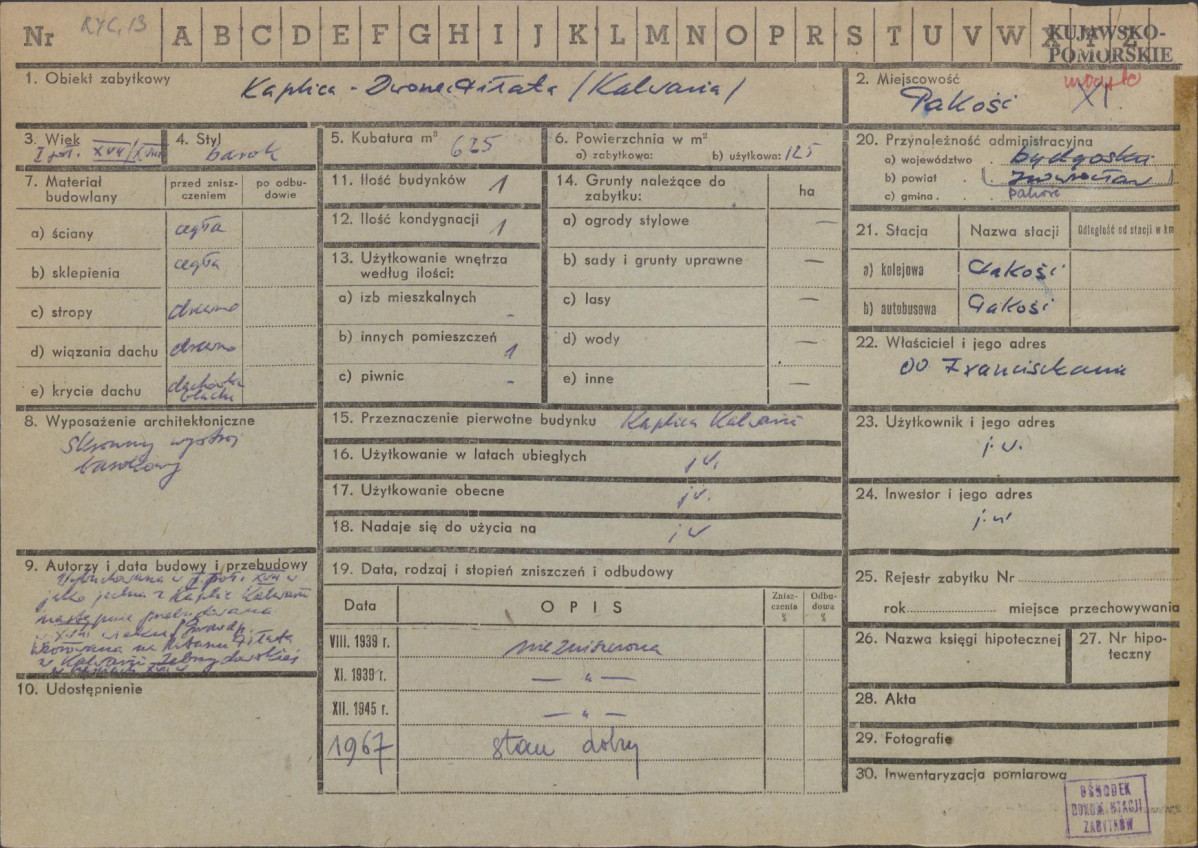 Nr RYC. 13 A B C D E F G H I J K L M N O P R S T U V W X Y Z
KUJAWSKO-
POMORSKIE
1. Obiekt zabytkowy
Kaplica - Dworzec Piłata /Kalwaria/
2. Miejscowość
Pakość
XI.
3. Wiek
I poł. XVII/XVIII
4. Styl
barok
5. Kubatura m³ 625
6. Powierzchnia w m²
a) zabytkowa: b) użytkowa: 125
7. Materiał budowlany
przed znisz-
czeniem
po odbu-
dowie
a) ściany cegła
b) sklepienia cegła
c) stropy drewno
d) wiązania dachu drewno
e) krycie dachu dachówka
blacha
8. Wyposażenie architektoniczne
Skromny wystrój
barokowy
9. Autorzy i data budowy i przebudowy
Wybudowana w I poł. XVII w
jako jedna z Kaplic Kalwarii
następnie przebudowana
w XVIII wieku
wzorowana na Ratuszu Piłata
w Kalwarii Zebrzydowskiej
10. Udostępnienie
11. Ilość budynków 1
12. Ilość kondygnacji 1
13. Użytkowanie wnętrza
według ilości:
a) izb mieszkalnych -
b) innych pomieszczeń 1
c) piwnic -
14. Grunty należące do
zabytku:
ha
a) ogrody stylowe —
b) sady i grunty uprawne —
c) lasy —
d) wody —
e) inne —
15. Przeznaczenie pierwotne budynku Kaplica Kalwarii
16. Użytkowanie w latach ubiegłych j.w.
17. Użytkowanie obecne j.w.
18. Nadaje się do użycia na j.w
19. Data, rodzaj i stopień zniszczeń i odbudowy
Data
OPIS
Znisz-
czenia
%
Odbu-
dowa
%
VIII. 1939 r. niezniszczona
XI. 1939 r. — „ —
XII. 1945 r. — „ —
1967 stan dobry
20. Przynależność administracyjna
a) województwo . bydgoskie
b) powiat . (Inowrocław)
c) gmina . Pakość
21. Stacja
Nazwa stacji
Odległość od stacji w km
a) kolejowa Pakość
b) autobusowa Pakość
22. Właściciel i jego adres
OO Franciszkanie
23. Użytkownik i jego adres
j.w.
24. Inwestor i jego adres
j.w
25. Rejestr zabytku Nr
rok miejsce przechowywania
26. Nazwa księgi hipotecznej
27. Nr hipo-
teczny
28. Akta
29. Fotografie
30. Inwentaryzacja pomiarowa
OŚRODEK
DOKUMENTACJI
ZABYTKÓW